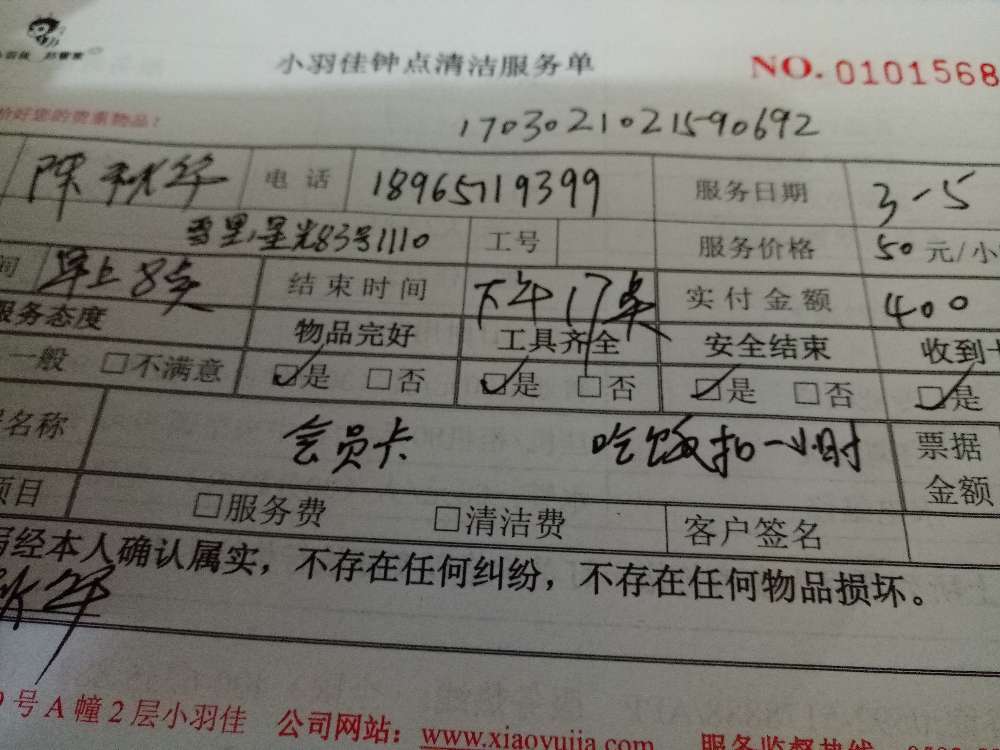 小羽佳钟点清洁服务单 NO. 0101568
好您的贵重物品!
170302102159069​2
陈秋华 电话 18965719399 服务日期 3-5
雪里星光83号1110 工号 服务价格 50元/小
间 早上8点 结束时间 下午17点 实付金额 400
服务态度 物品完好 工具齐全 安全结束 收到
一般 □不满意 ☑是 □否 ☑是 □否 ☑是 □否 ☑是
名称 会员卡 吃饭扣一小时 票据
金额
项目 □服务费 □清洁费 客户签名
经本人确认属实，不存在任何纠纷，不存在任何物品损坏。
秋华
号A幢2层小羽佳 公司网站：www.xiaoyujia.com 服务监督热线